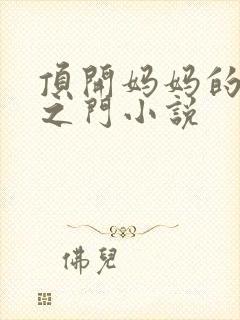 頂開妈妈的
之門小説
佛兒